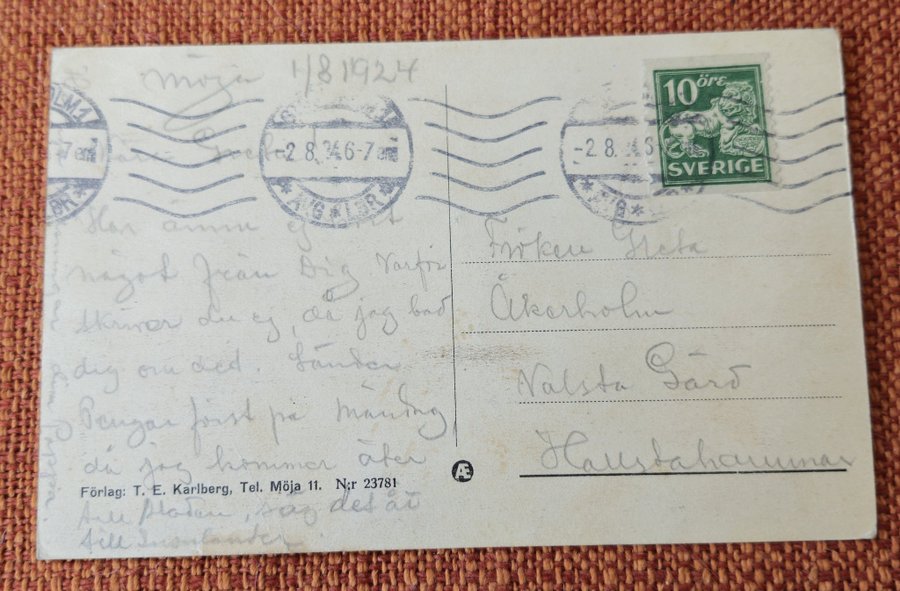 Möja 1/8 1924
Kära Greta!
Har ännu ej hört
något från Dig Varför
skriver du ej, då jag bad
dig om det. Sänder
Pengar först på Måndag
då jag kommer åter
till Staden, säg det åt
till
Förlag: T. E. Karlberg, Tel. Möja 11. N:r 23781
Æ
-2.8.24 6-7
10 öre
SVERIGE
Fröken Greta
Åkerholm
Nalsta Gård
Hallstahammar